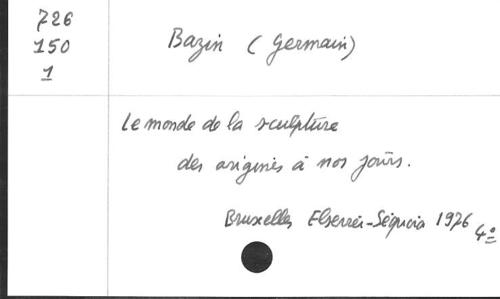 726
150
1
Bazin (Germain)
Le monde de la sculpture
des origines à nos jours.
Bruxelles Elsevier-Séquoia 1976
4º